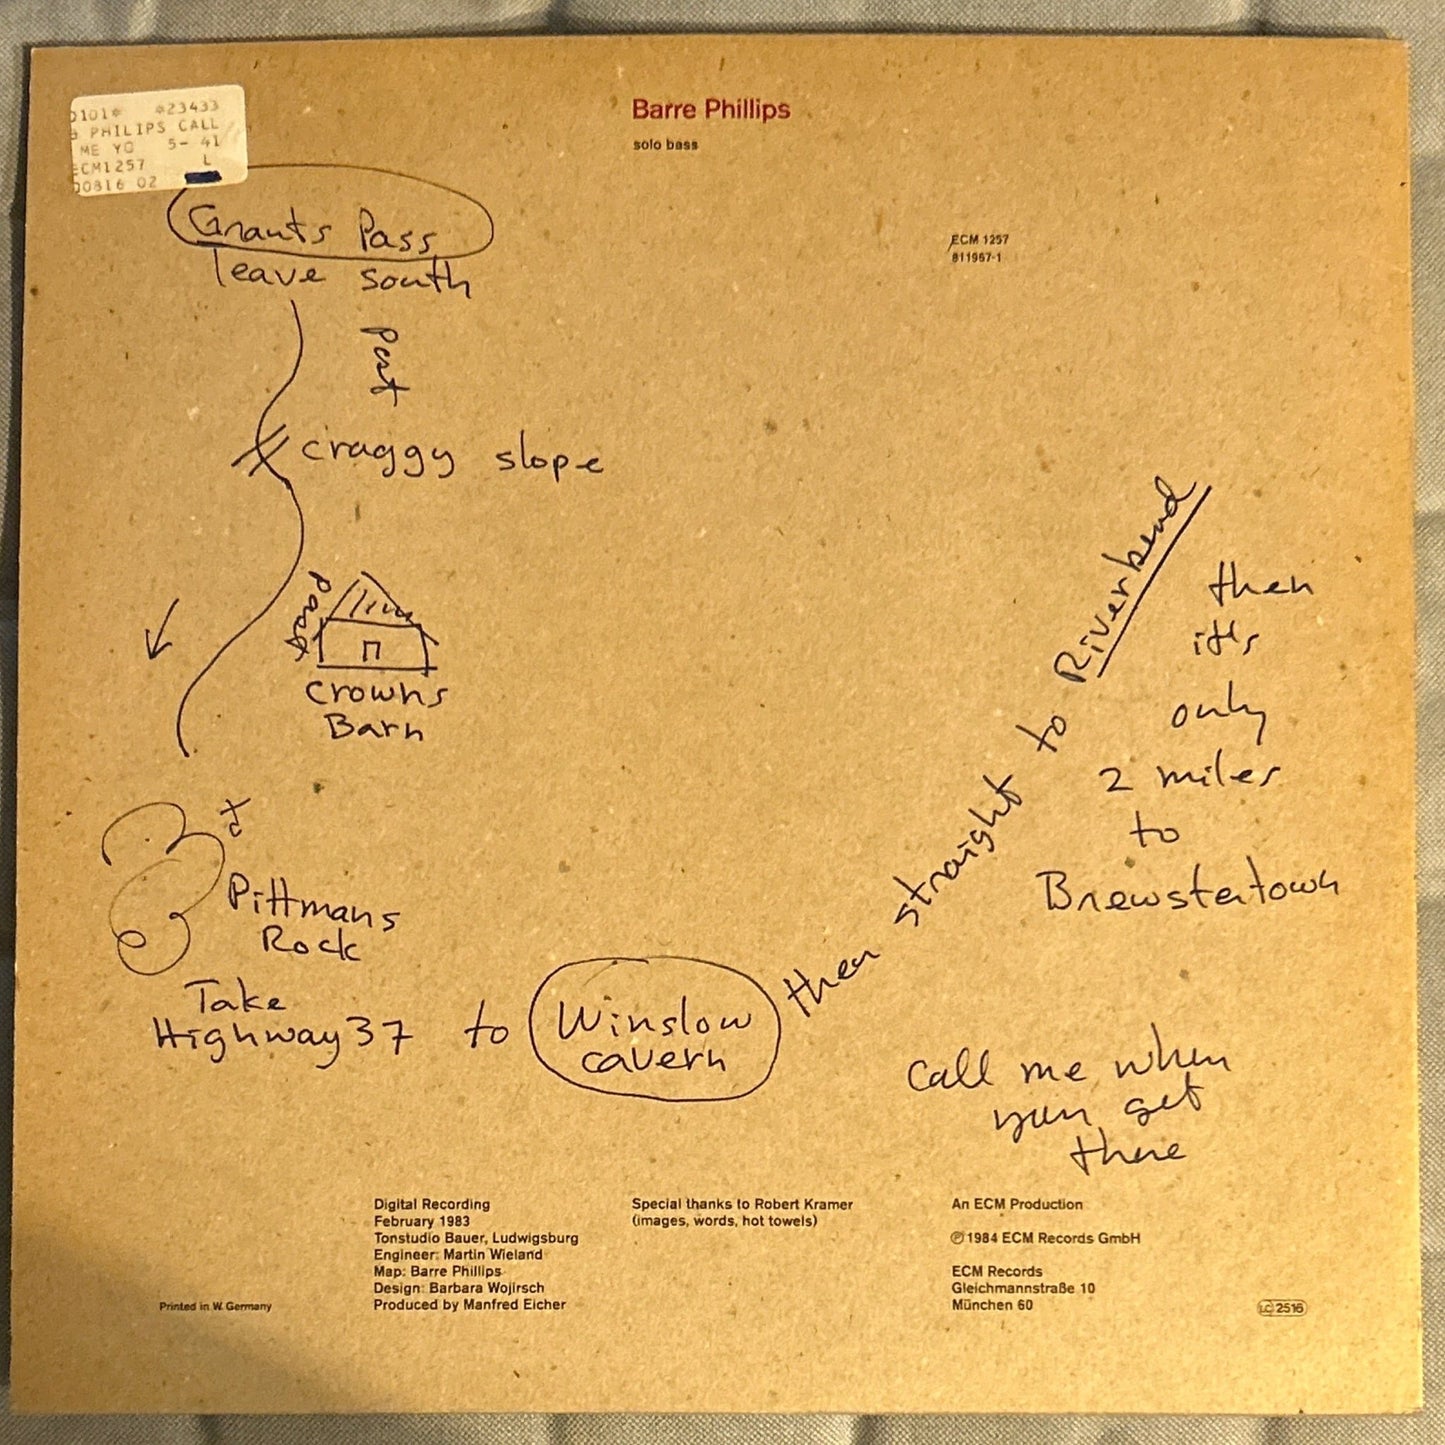 0101* *23433
PHILIPS CALL
ME YO 5- 41
ECM1257 L
00816 02
Barre Phillips
solo bass
ECM 1257
811967-1
Grants Pass
leave south
past
craggy slope
past
Crowns
Barn
to
Pittmans
Rock
Take
Highway 37 to Winslow
cavern
then straight to Riverbend
then
it's
only
2 miles
to
Brewstertown
Call me when
you get
there
Digital Recording
February 1983
Tonstudio Bauer, Ludwigsburg
Engineer: Martin Wieland
Map: Barre Phillips
Design: Barbara Wojirsch
Produced by Manfred Eicher
Special thanks to Robert Kramer
(images, words, hot towels)
An ECM Production
℗ 1984 ECM Records GmbH
ECM Records
Gleichmannstraße 10
München 60
Printed in W. Germany
LC 2516